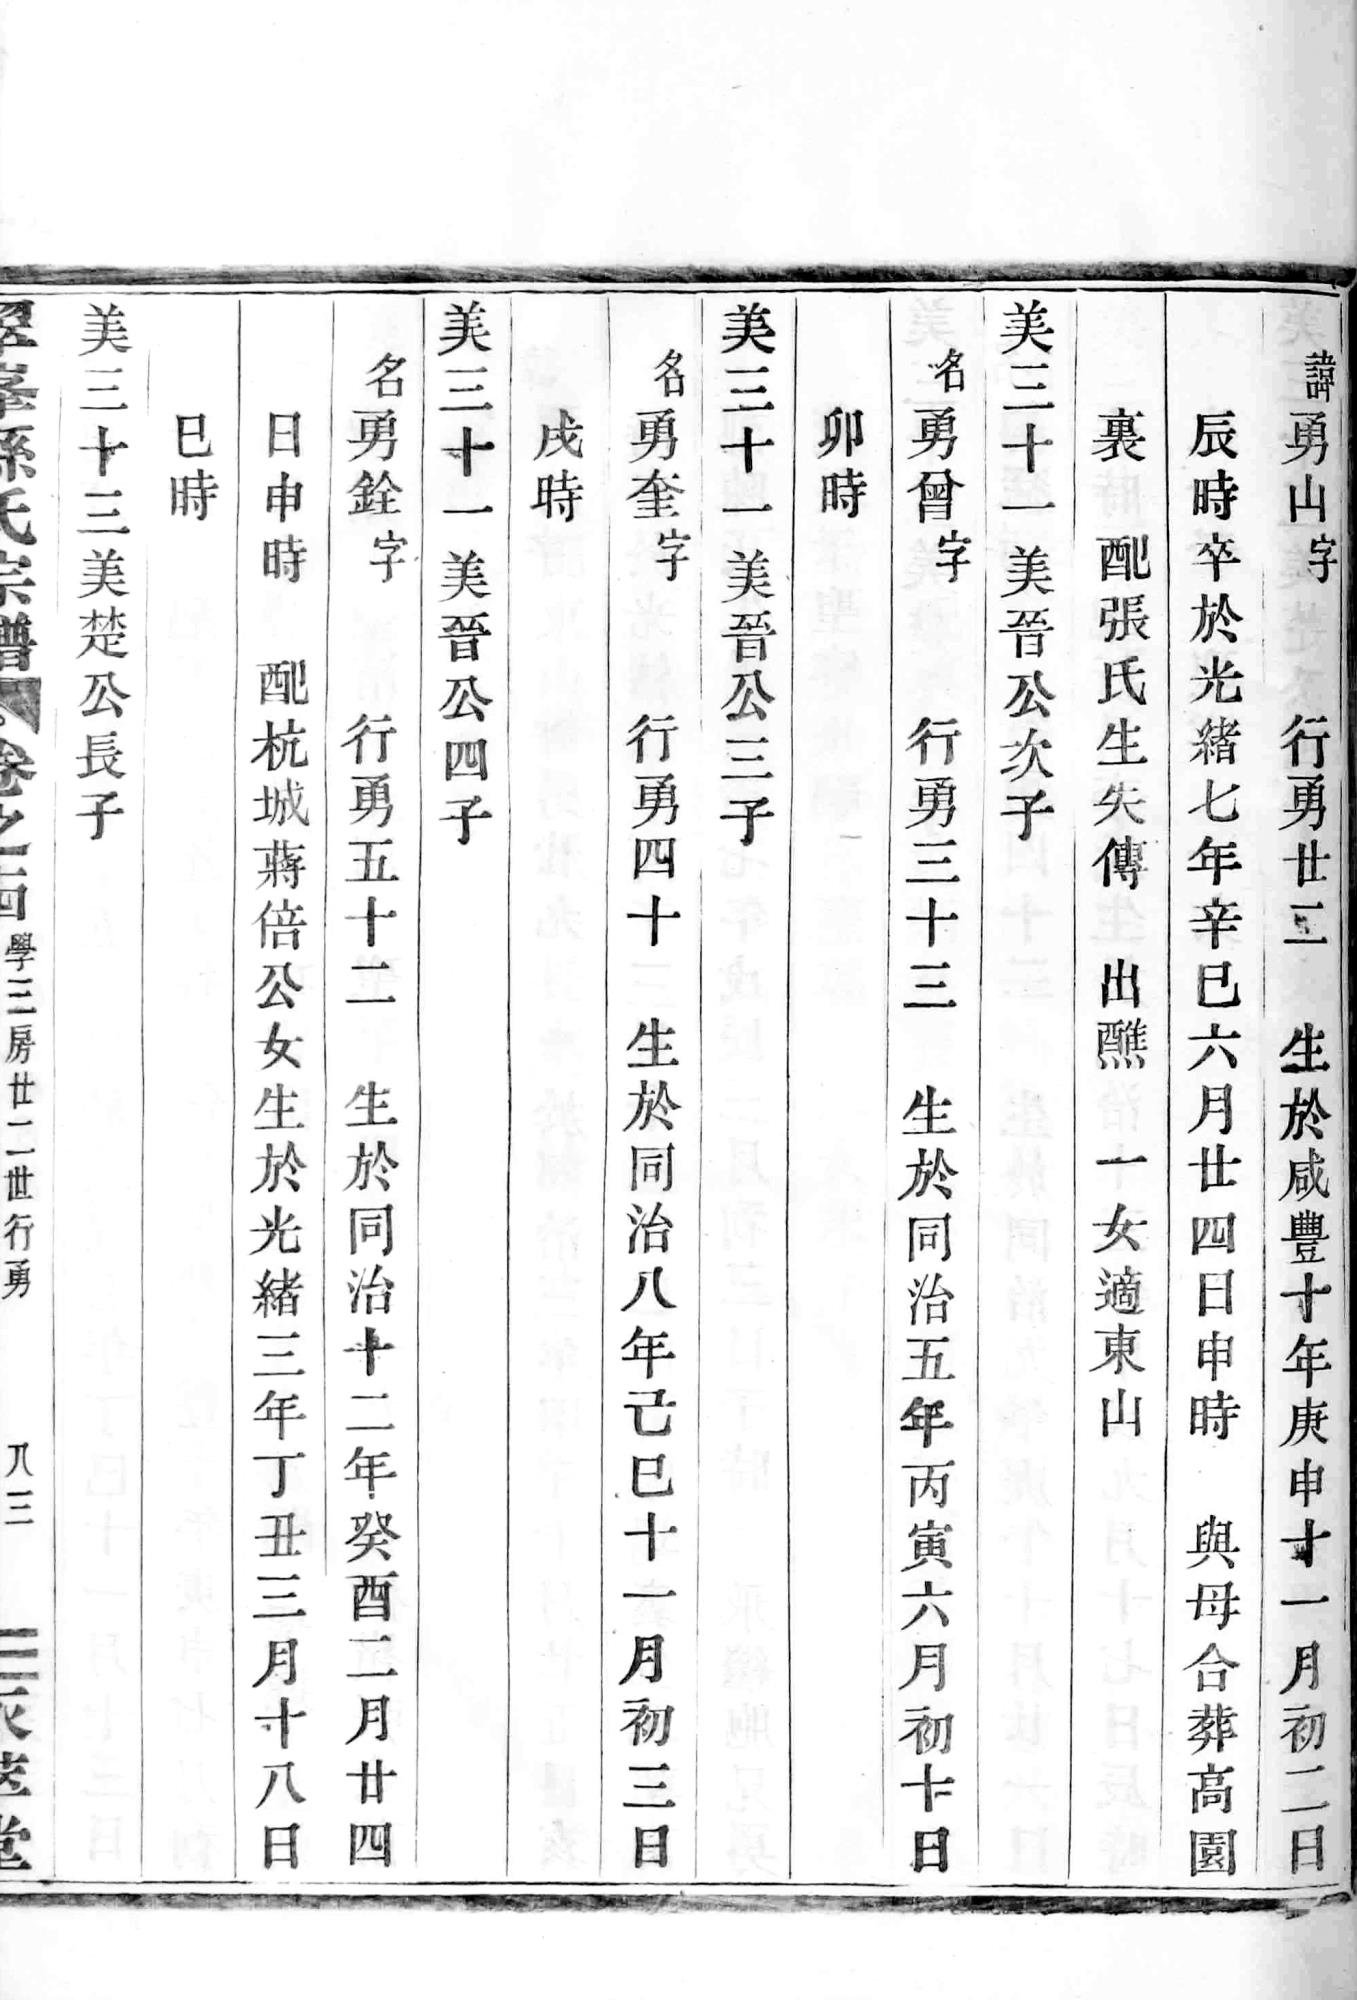 諱勇山字　行勇廿二　生於咸豐十年庚申十一月初二日
辰時卒於光緒七年辛巳六月廿四日申時　與母合葬高園
裏　配張氏生失傳　出醮　一女適東山
美三十一　美晉公次子
名勇曾字　行勇三十三　生於同治五年丙寅六月初十日
卯時
美三十一　美晉公三子
名勇奎字　行勇四十　生於同治八年己巳十一月初三日
戌時
美三十一　美晉公四子
名勇銓字　行勇五十二　生於同治十二年癸酉二月廿四
日申時　配杭城蔣倍公女生於光緒三年丁丑三月十八日
巳時
美三十三美楚公長子
孫氏宗譜　卷之四　學三房廿二世行勇　八三　堂